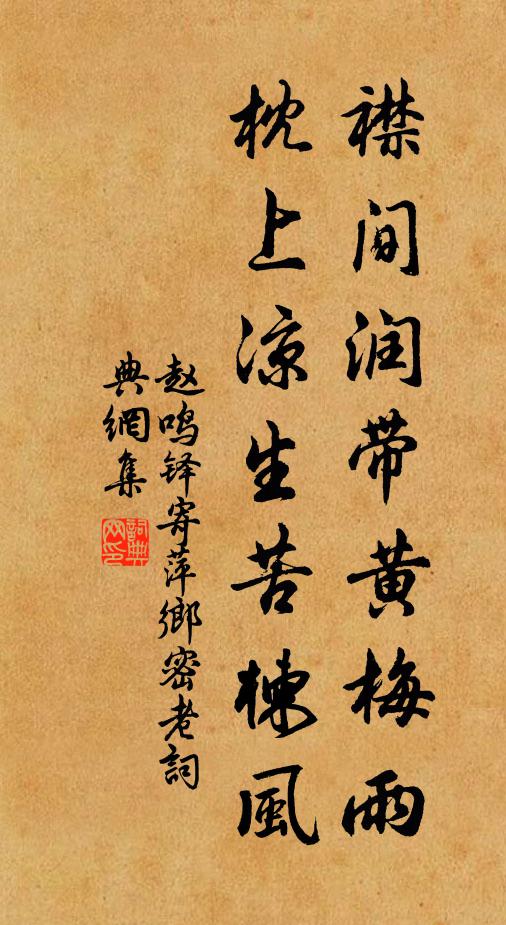 襟间润带黄梅雨
枕上凉生苦楝風
赵鸣铎寄萍鄉密老詞
典網集
詞典
网印